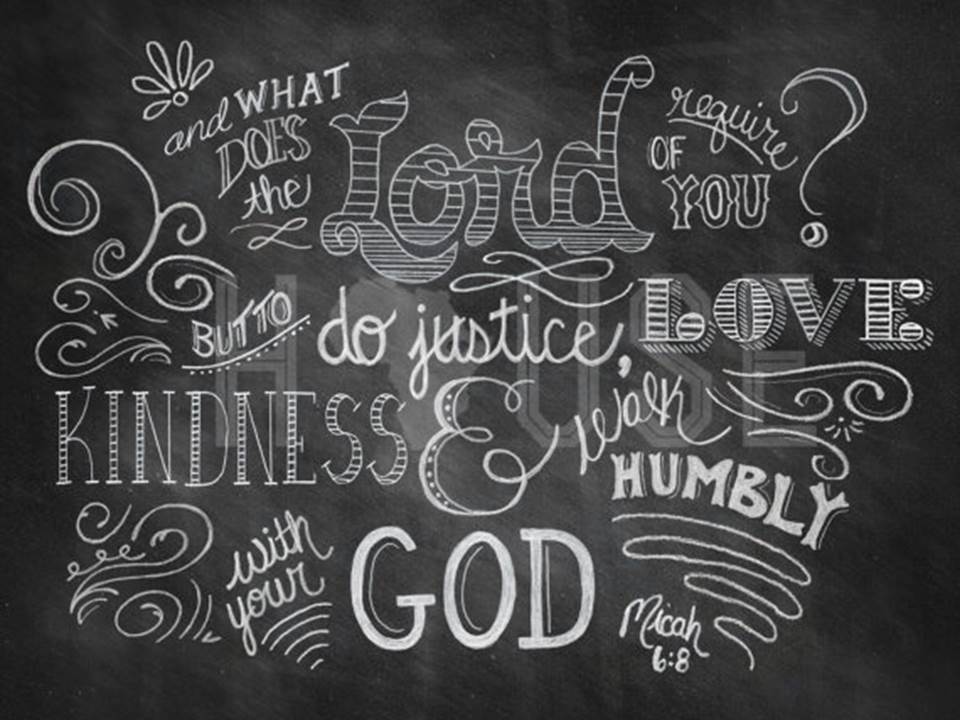 and WHAT
DOES
the
Lord
require
OF
YOU?
BUT TO
do justice,
LOVE
KINDNESS
&
walk
HUMBLY
with
your
GOD
Micah
6:8
HOUSE